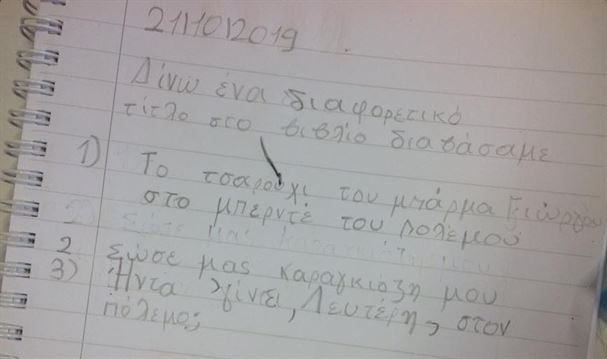 21/10/2019
Δίνω ένα διαφορετικό
τίτλο στο βιβλίο διαβάσαμε
1) Το τσαρούχι του μπάρμα Γιώργου
στο μπερντέ του πολέμου
2 Σώσε μας καραγκιόζη μου
3) Ήντα γίντει, Λευτέρη, στον
πόλεμο;